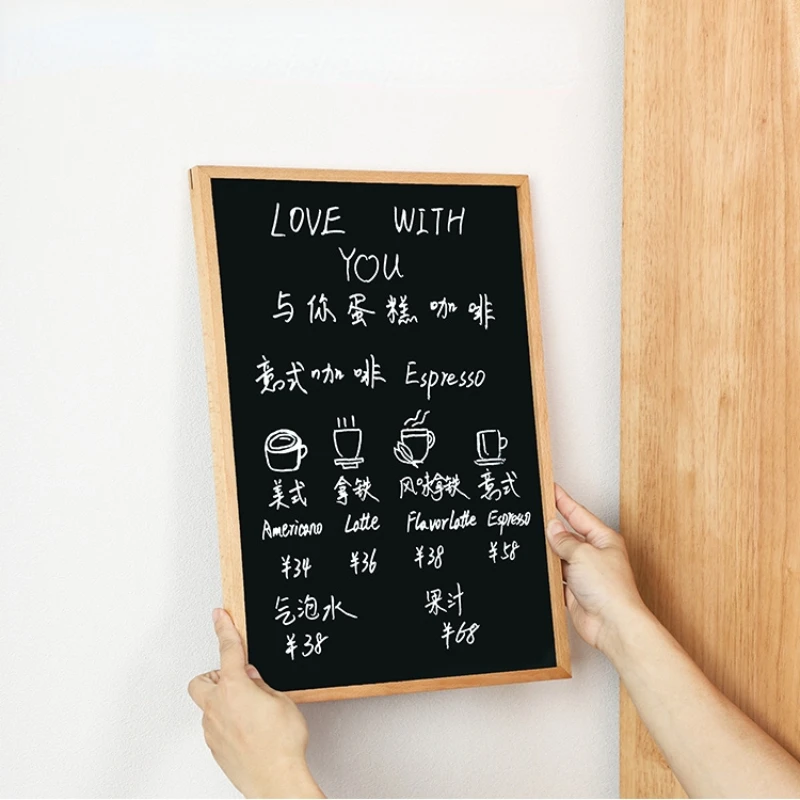 LOVE WITH
YOU
与你蛋糕咖啡
意式咖啡 Espresso
美式 拿铁 风味拿铁 意式
Americano Latte Flavorlatte Espresso
¥34 ¥36 ¥38 ¥58
气泡水 果汁
¥38 ¥68